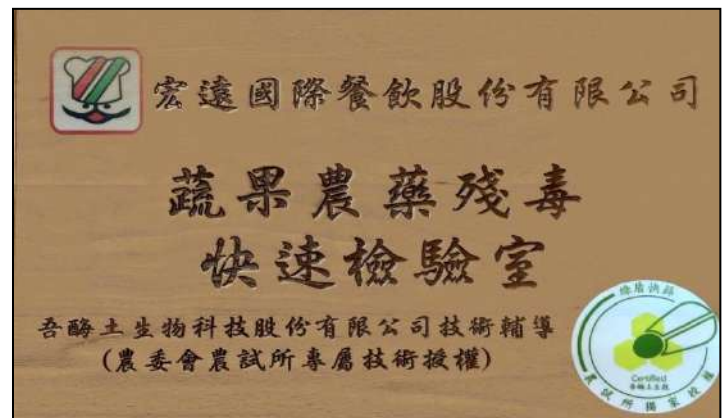 宏遠國際餐飲股份有限公司
蔬果農藥殘毒
快速檢驗室
吾酶土生物科技股份有限公司技術輔導
(農委會農試所專屬技術授權)
Certified
農試所獨家授權